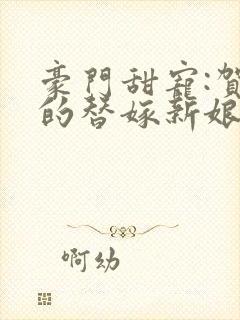 豪門甜寵:賀
的替嫁新娘
啊幼